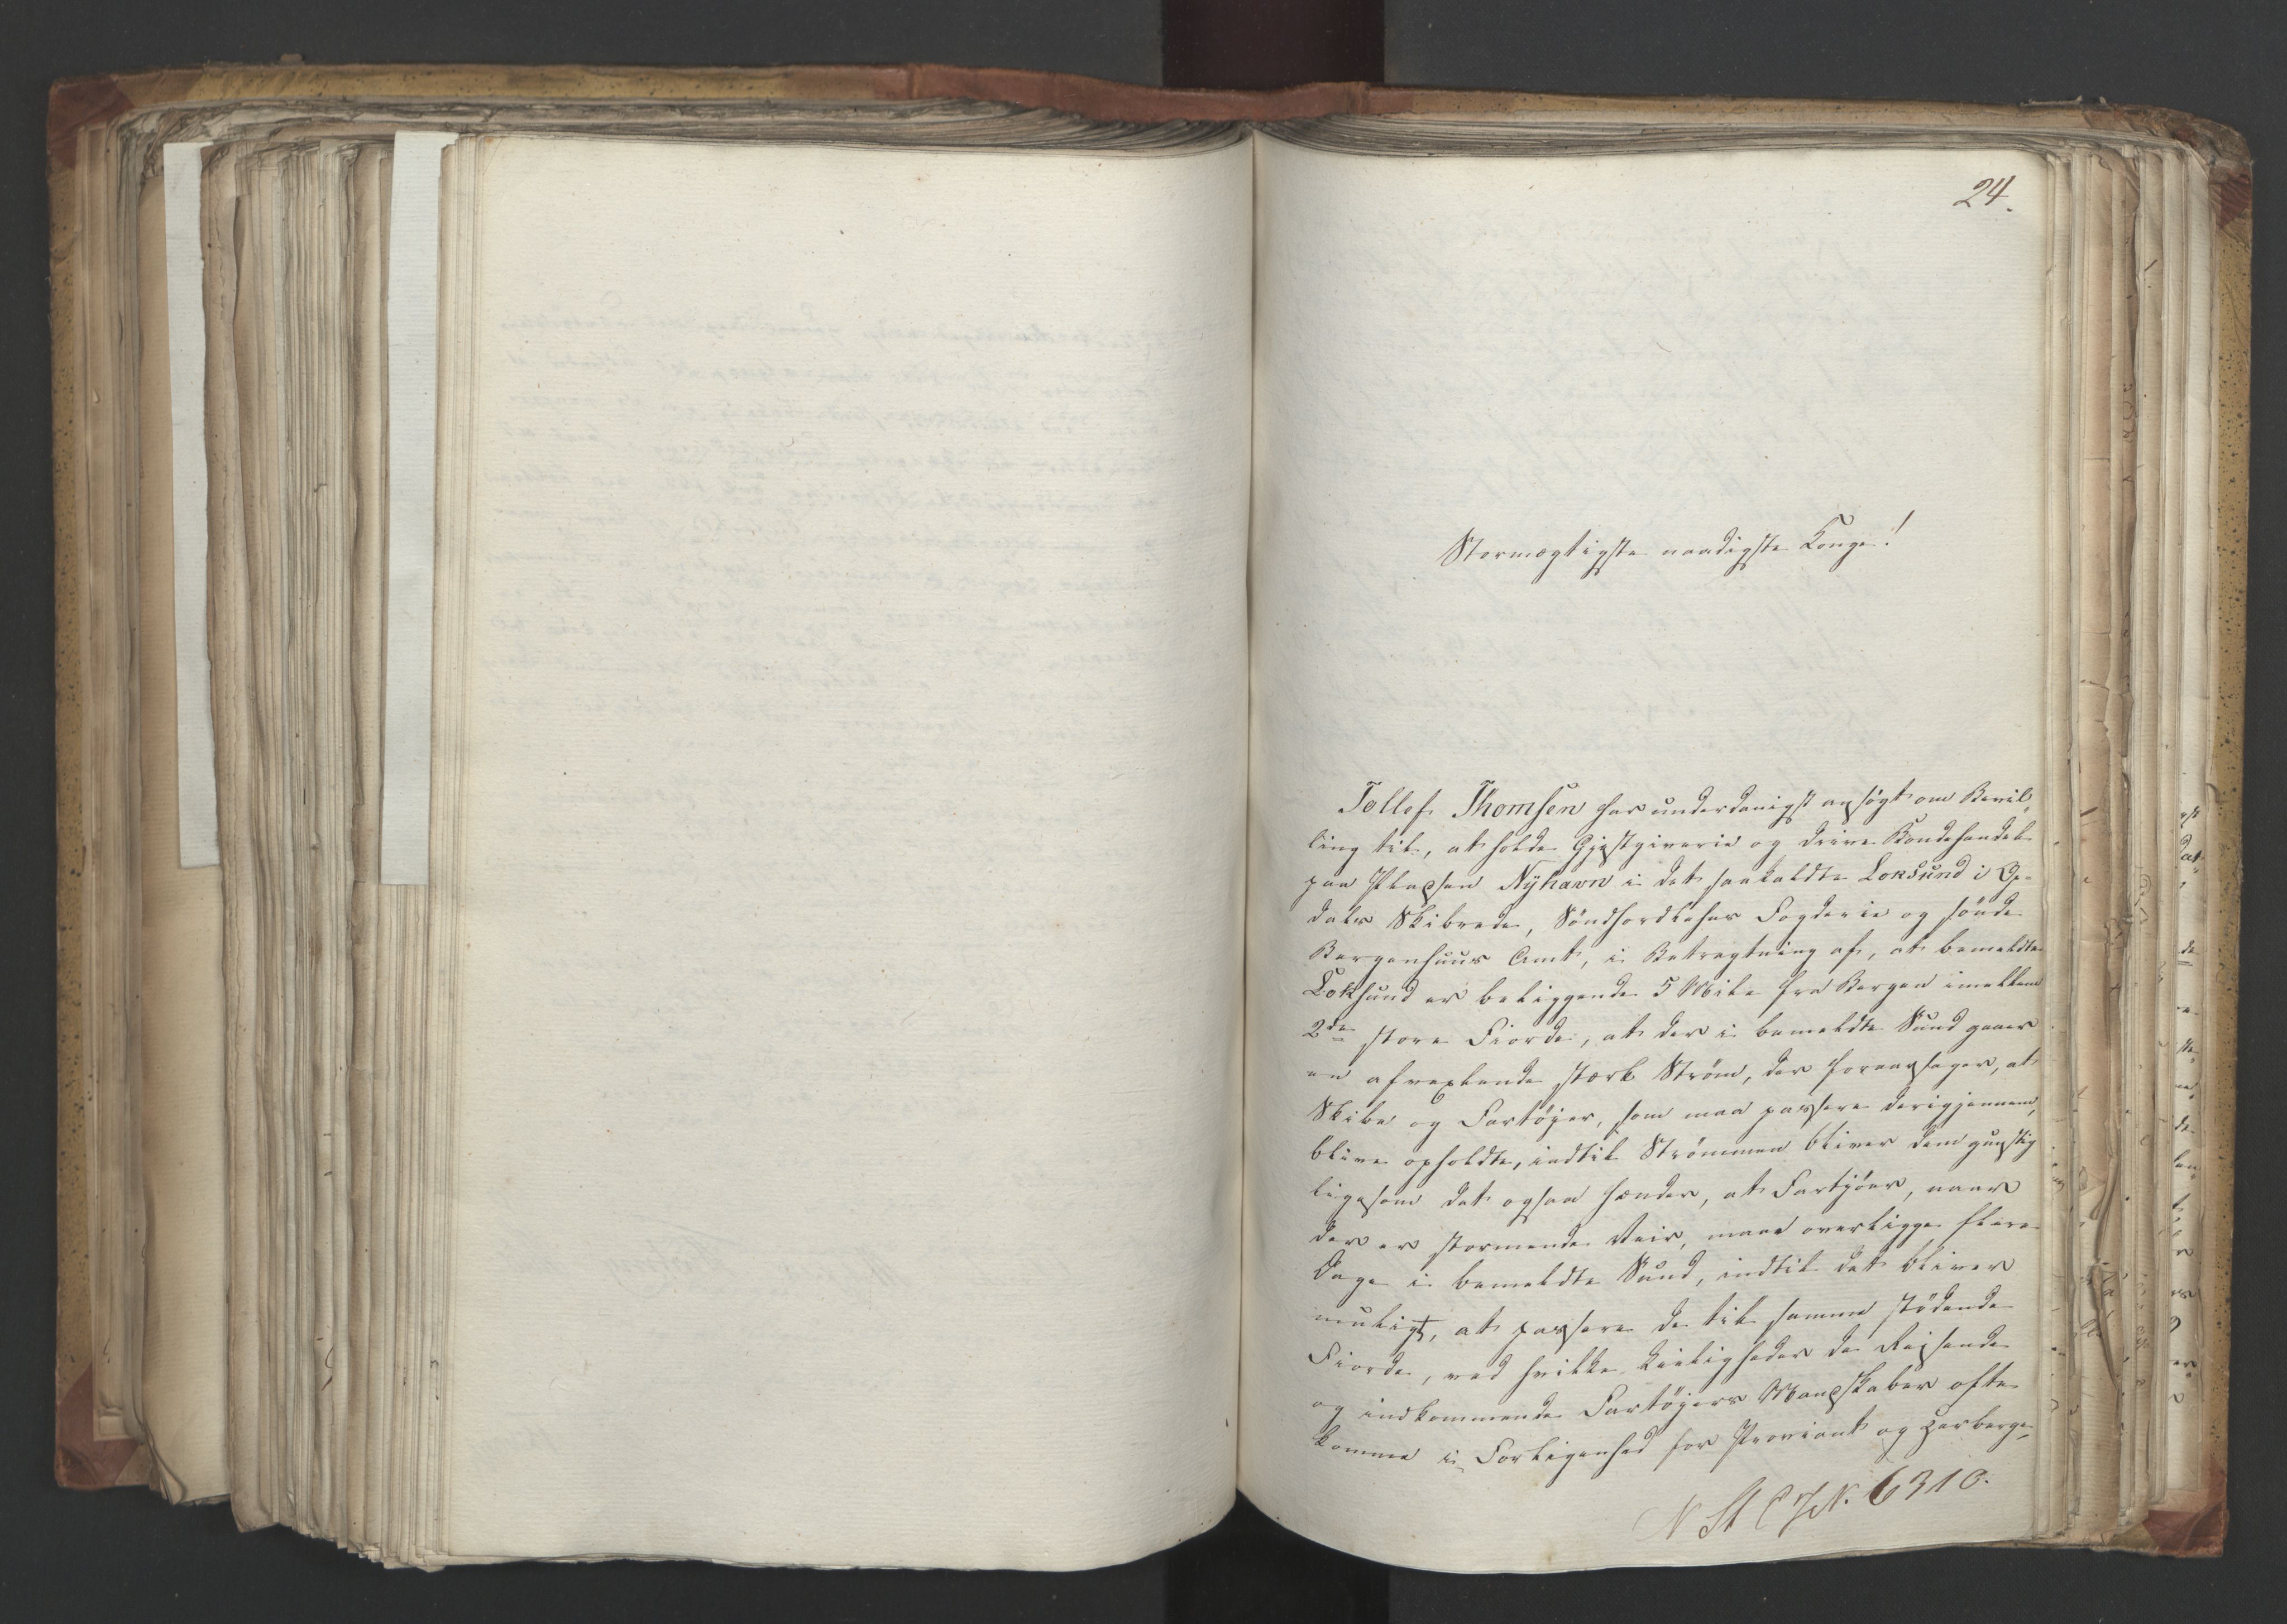 24.
Stormægtigste naadigste Konge!
Tollef Thomsen har underdanigst ansøgt om Bevil-
ling til, at holde Gjæstgiverie og drive Bondehandel
paa Pladsen Nÿhavn i det saakaldte Loksund i Op-
dals Skibrede, Söndhordlehns Fogderie og söndre
Bergenhuus Amt, i Betragtning af, at bemeldte
Loksund er beliggende 5 Mile fra Bergen imellem
2de store Fiorde, at der i bemeldte Sund gaaer
en afvexlende stærk Ström, der foraarsager, at
Skibe og Fartöyer, som maa passere derigjennem,
blive opholdte, indtil Strömmen bliver dem gunstig
ligesom det ogsaa hænder, at Fartyöer, naar
der er stormende Veir, maae overligge flere
Dage i bemeldte Sund, indtil det bliver
muligt, at passere de til samme stödende
Fiorde, ved hvilke Leiligheder de Reisende
og indkommende Fartöyers Mandskaber ofte
komme i Forlegenhed for Proviant og Herberge,
N St C N. 6310.